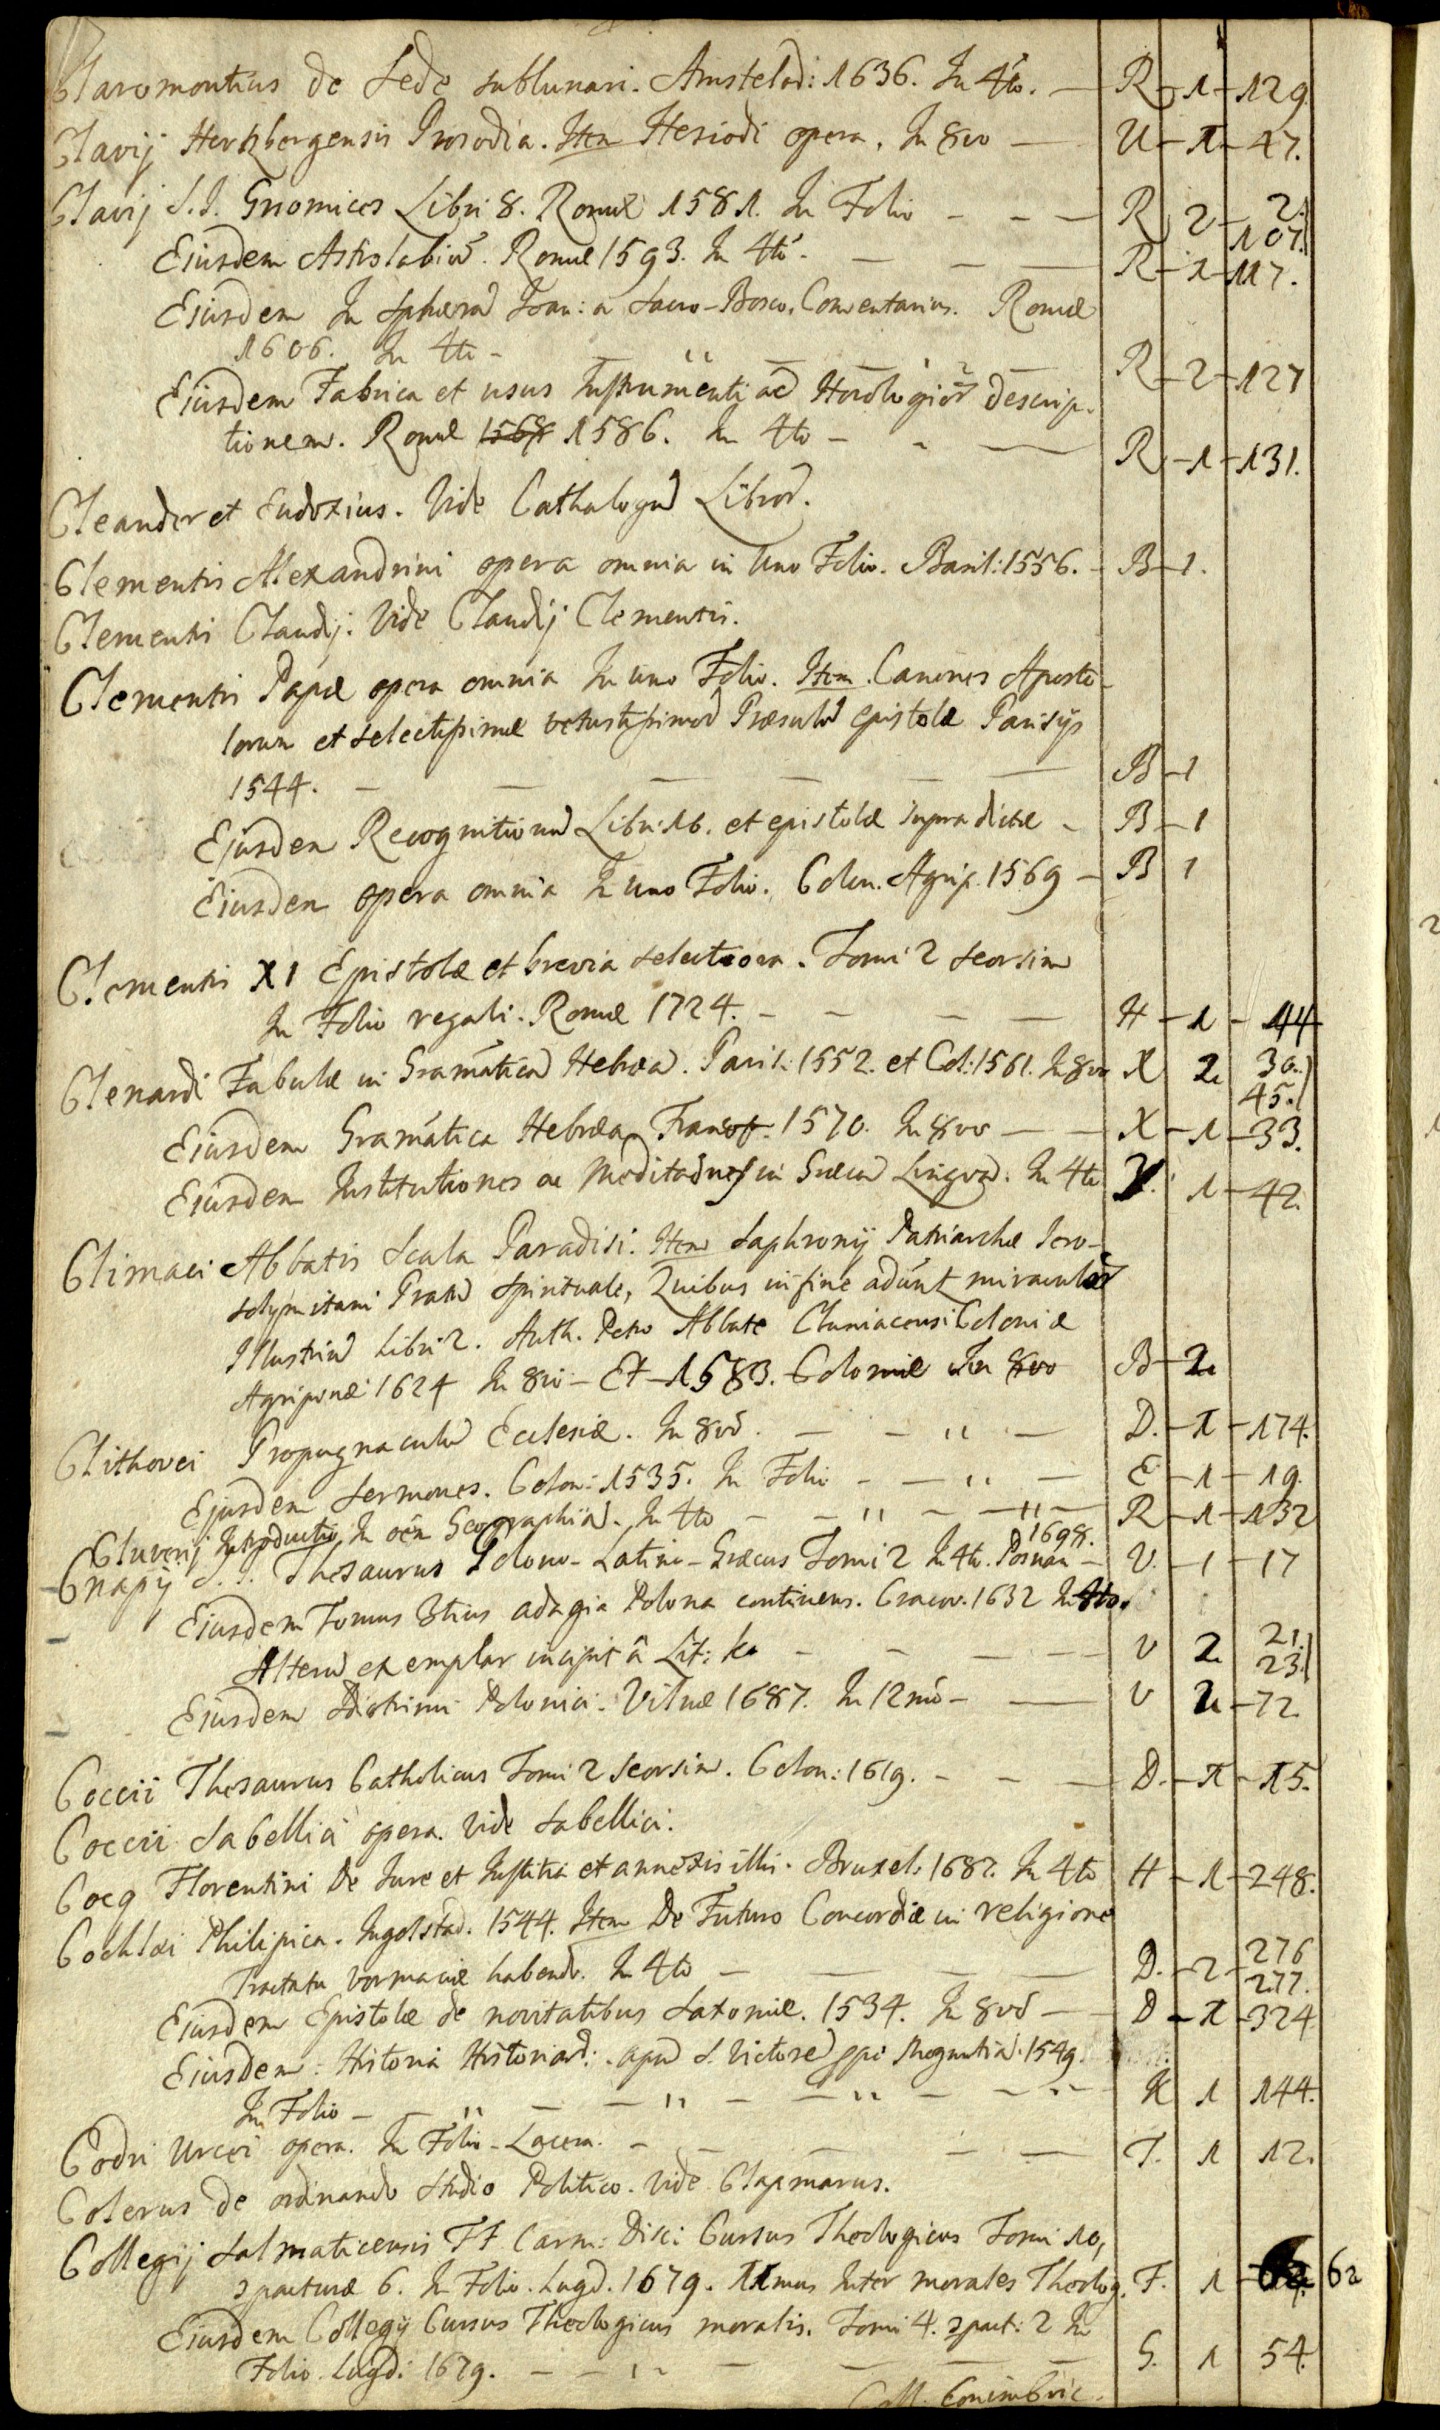 Claromontius de Sede sublunari. Amstelod: 1636. In 4to. — R – 1 – 129
Clavij Hertzbergensis Prosodia. Item Hesiodi opera. In 8vo — U – 1 – 47.
Clavij S.J. Gnomices Libri 8. Romæ 1581. In Folio – – — R 2 – 2. 107.
Eiusdem Astrolabiū. Romæ 1593. In 4to. — – — R – 1 – 117.
Eiusdem In Sphærā Joan: a Sacro-Bosco. Comentarius. Romæ
1606. In 4to – R – 2 – 127
Eiusdem Fabrica et usus Instrumenti ad Horologiorū descrip-
tionem. Romæ 1568 1586. In 4to – – — R – 1 – 131.
Cleander et Eudoxius. Vide Cathalogū Libror.
Clementis Alexandrini opera omnia in uno Folio. Basil: 1556. – B – 1.
Clementis Claudij. Vide Claudij Clementis.
Clementis Papæ opera omnia In uno Folio. Item. Canones Aposto-
lorum et selectissimæ vetustissimorū Præsulū Epistolæ Parisijs
1544. – — — — — B – 1
Eiusdem Recognitionū Libri 10. et epistolæ supra dictæ – B – 1
Eiusdem opera omnia In uno Folio. Colon. Agrip. 1569 – B 1
Clementis XI Epistolæ et brevia selectiora. Tomi 2 seorsim
In Folio regali. Romæ 1724. – – — — H – 1 – 44
Clenardi Tabulæ in Gramáticā Hebræa. Paris: 1552. et Col: 1561. In 8vo X 2 36. 45.
Eiusdem Gramática Hebræa Francof. 1570. In 8vo — – X – 1 – 33.
Eiusdem Institutiones ac Meditationes in Græcā Linguā. In 4to 1 – 42.
Climaci Abbatis Scala Paradisi. Item Saphronij Patriarchæ Iero-
solymitani Pratū Spirituale, Quibus in fine adsunt miraculorū
Illustriū Libri 2. Auth. Petro Abbate Cluniacensi Coloniæ
Agripinæ 1624 In 8vo – Et – 1583. Coloniæ In 8vo B – 2
Clithovei Propugnaculū Ecclesiæ. In 8vo. — – " — D. – 1 – 174.
Eiusdem Sermones. Colon: 1535. In Folio – — " — E – 1 – 19.
Cluverij Introductio In oēm Geographiā. In 4to – – " – — " — R – 1 – 132
Cnapij S.J. Thesaurus Polono-Latino-Græcus Tomi 2 In 4to. Posnan 1698. – V. – 1 – 17
Eiusdem Tomus 3tius adagia Polona continens. Cracov. 1632 In 4to.
Alterū exemplar incipit â Lit: ko – – – — V 2. 21. 23.
Eiusdem Polonici. Vilnæ 1687. In 12mo – — V 2 – 72
Coccii Thesaurus Catholicus Tomi 2 seorsim. Colon: 1619. – – — D. – 1 – 15.
Coccii Sabellici opera. Vide Sabellici.
Cocq Florentini De Jure et Justitia et annexis illis. Bruxel. 1687. In 4to H – 1 – 248.
Cochlæi Philipica. Ingolstad. 1544. Item De Futuro Concordiæ in religione
Tractatu vormaciæ habendo. In 4to – — — — D. – 2 – 276 277.
Eiusdem Epistolæ de novitatibus Saxoniæ. 1534. In 8vo — D – 1 – 324
Eiusdem: Historia Hussitarū: apud S. Victorē prope Moguntiā. 1549.
In Folio – – " — – " – – " – – " – K 1 144.
Codri Urcei opera. In Folio – Lacera. – – — – — T. 1 12.
Colerus de ordinando Studio Politico. Vide Clapmarus.
Collegij Salmaticensis FF Carm: Disc: Cursus Theologicus Tomi 10,
compacturæ 6. In Folio. Lugd. 1679. Inter morales Theolog. F. 1 – 62
Eiusdem Collegij Cursus Theologicus moralis. Tomi 4. compact: 2 In
Folio Lugd: 1679. – – " – – — — G. 1 54.
Coll. Conimbric.